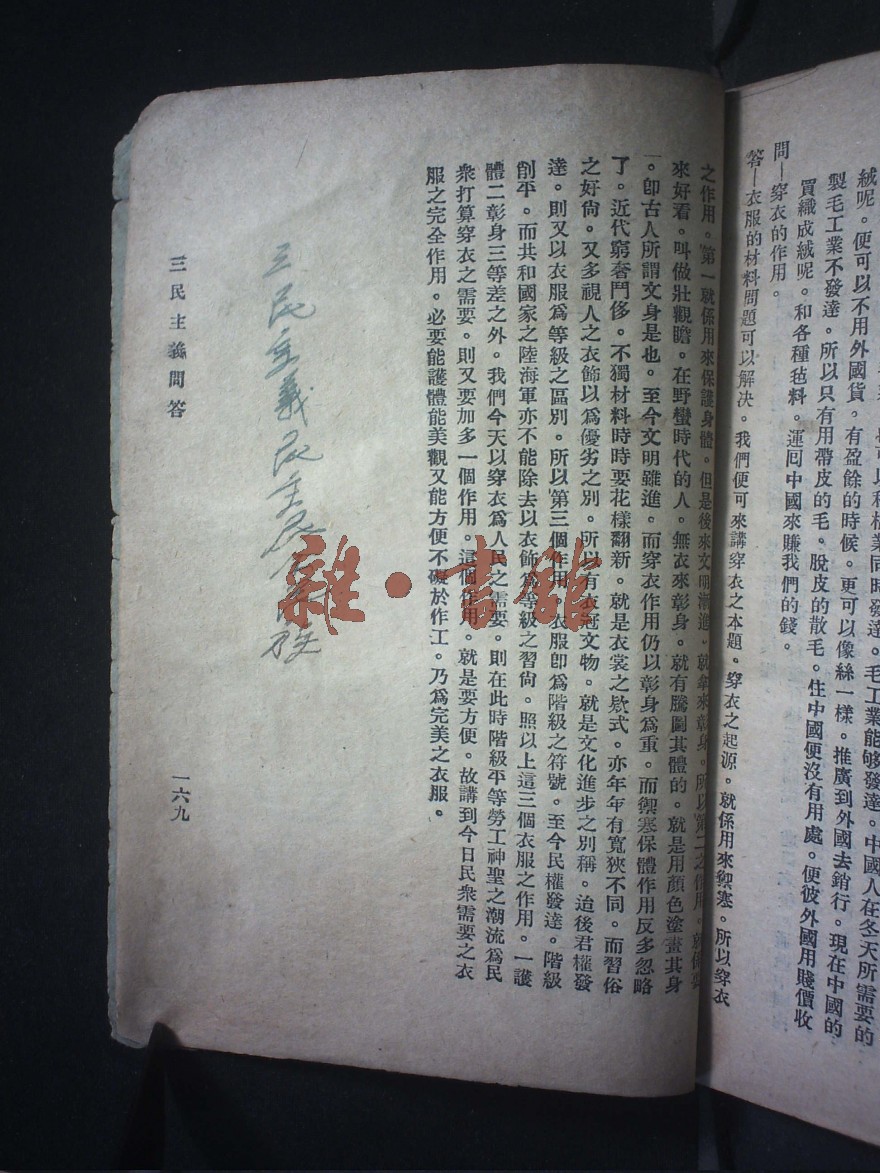 絨呢。便可以不用外國貨。有盈餘的時候。更可以像絲一樣。推廣到外國去銷行。現在中國的
製毛工業不發達。所以只有用帶皮的毛。脫皮的散毛。住中國便沒有用處。便彼外國用賤價收
買織成絨呢。和各種毡料。運囘中國來賺我們的錢。
問—穿衣的作用。
答—衣服的材料問題可以解决。我們便可來講穿衣之本題。穿衣之起源。就係用來禦塞。所以穿衣
之作用。第一就係用來保護身體。但是後來文明漸進。就拿來彰身。所以第二之作用。就係要
來好看。叫做壯觀瞻。在野蠻時代的人。無衣來彰身。就有騰圖其體的。就是用顏色塗畫其身
。卽古人所謂文身是也。至今文明雖進。而穿衣作用仍以彰身爲重。而禦寒保體作用反多忽略
了。近代窮奢鬥侈。不獨材料時時要花樣翻新。就是衣裳之欵式。亦年年有寬狹不同。而習俗
之好尙。又多視人之衣飾以爲優劣之別。所以有衣冠文物。就是文化進步之別稱。迨後君權發
達。則又以衣服爲等級之區別。所以第三個作用。衣服卽爲階級之符號。至今民權發達。階級
削平。而共和國家之陸海軍亦不能除去以衣飾爲等級之習尙。照以上這三個衣服之作用。一護
體二彰身三等差之外。我們今天以穿衣爲人民之需要。則在此時階級平等勞工神聖之潮流爲民
衆打算穿衣之需要。則又要加多一個作用。這個作用。就是要方便。故講到今日民衆需要之衣
服之完全作用。必要能護體能美觀又能方便不礙於作工。乃爲完美之衣服。
三民主義民主民
雜·書館
三民主義問答
一六九